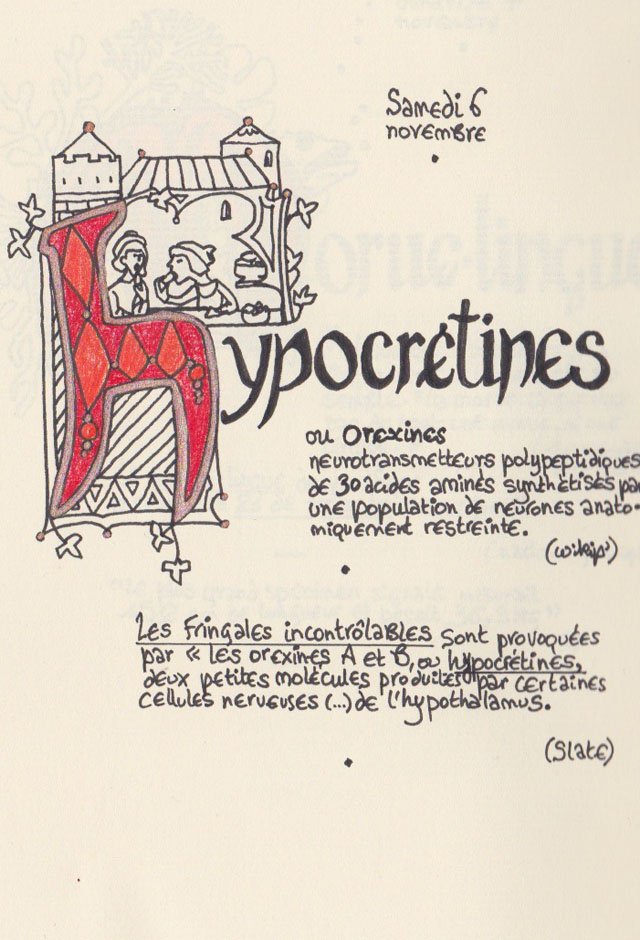 Samedi 6
novembre
Hypocrétines
ou Orexines
neurotransmetteurs polypeptidiques
de 30 acides aminés synthétisés par
une population de neurones anato-
miquement restreinte.
(wikip')
Les Fringales incontrôlables sont provoquées
par « les orexines A et B, ou hypocrétines,
deux petites molécules produites par certaines
cellules nerveuses (...) de l'hypothalamus.
(Slate)